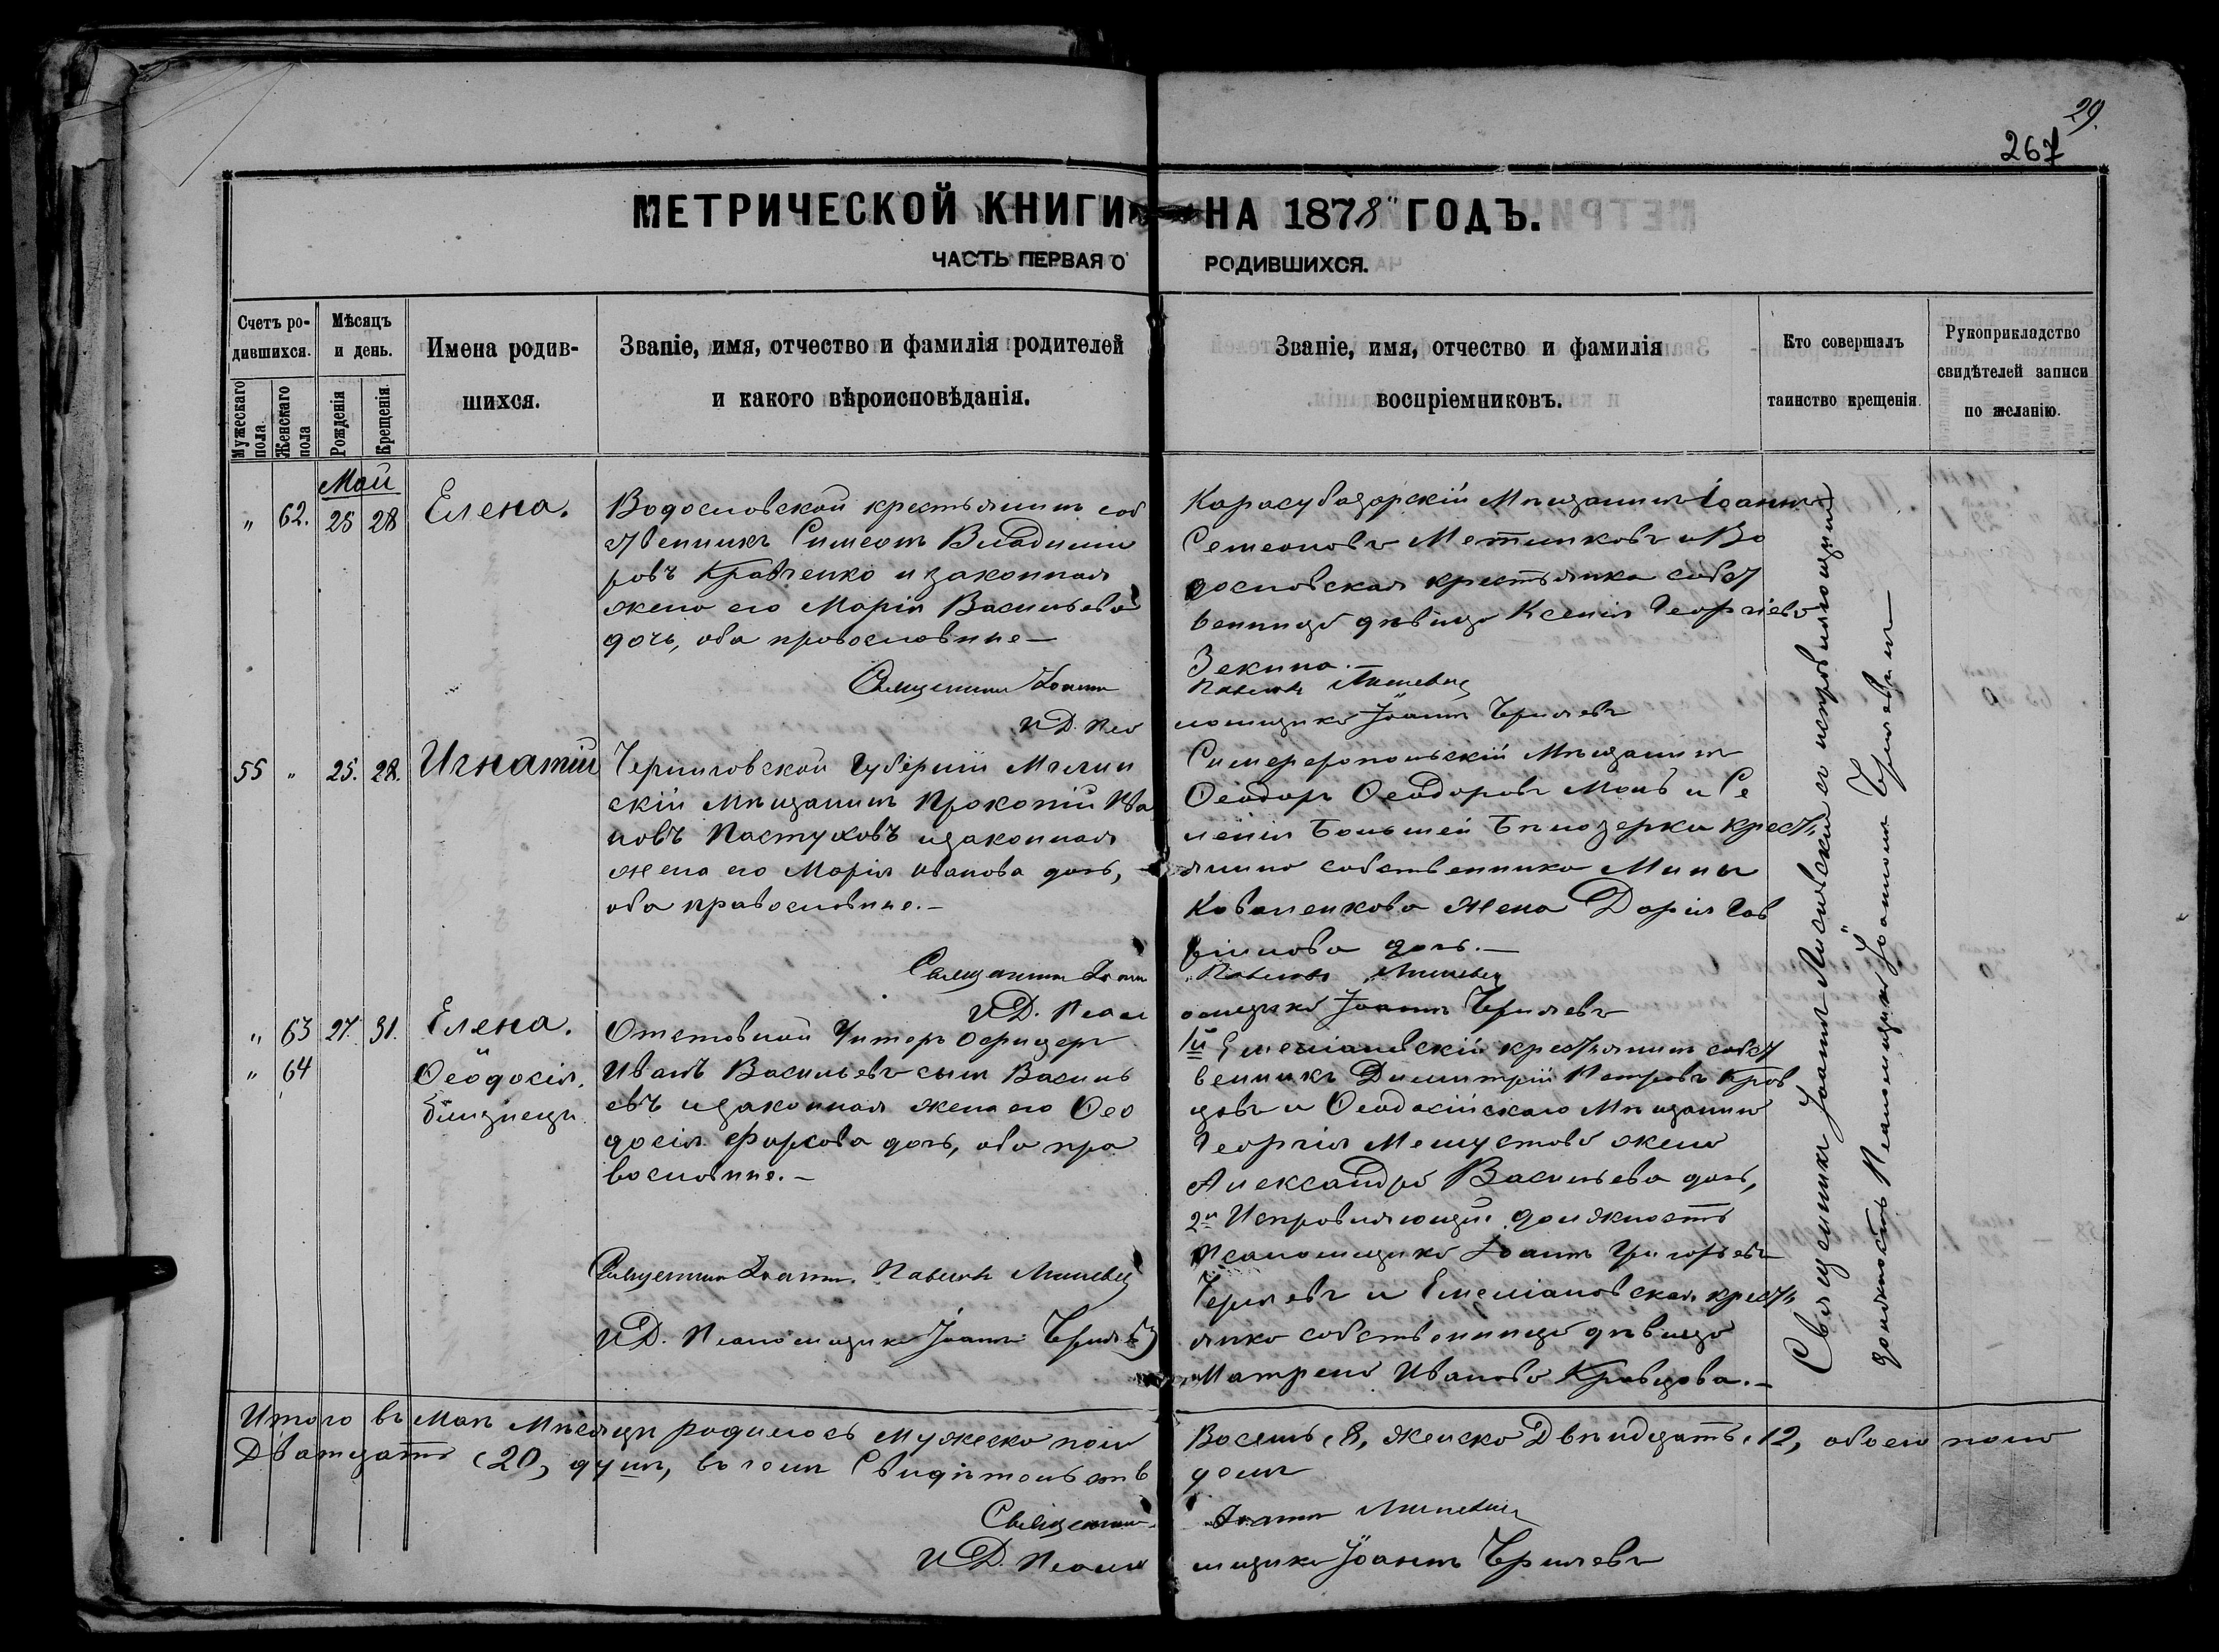 29.
267
МЕТРИЧЕСКОЙ КНИГИ НА 1878 ГОДЪ.
ЧАСТЬ ПЕРВАЯ О РОДИВШИХСЯ.
Счетъ ро-
дившихся.
Мужескаго пола.
Женскаго пола
Мѣсяцъ
и день.
Рожденія
Крещенія.
Имена родив-
шихся.
Званіе, имя, отчество и фамилія родителей
и какого вѣроисповѣданія.
Званіе, имя, отчество и фамилія
воспріемниковъ.
Кто совершалъ
таинство крещенія.
Рукоприкладство
свидѣтелей записи
по желанію.
Май
" 62. 25 28 Елена.
крестьянинъ соб
ственникъ Симеонъ Владими
ровъ Кравченко и законная
жена его Марія Васильева
дочь, оба православные —
Священникъ Іоаннъ
И Д. Псо
Карасубазарскій Мѣщанинъ Іоаннъ
Семеоновъ и Во
дословская крестьянка собст
венница дѣвица Ксенія Георгіева
Зекина. —
ломщика Іоаннъ
55 " 25. 28. Игнатій
Черниговской Губерніи Мглин
скій Мѣщанинъ Прокопій Ива
новъ Пастуховъ и законная
жена его Марія Иванова дочь,
оба православные. —
Священникъ Іоан
И Д. Псал
Симферопольскій Мѣщанинъ
Ѳеодоръ Ѳеодоровъ и Се
ленія Большей Бѣлозерки Кресть
янина собственника Мины
Коваленкова жена Дарія Гав
рiилова дочь. —
омщика Іоаннъ
" 63 27. 31. Елена.
" 64 Ѳеодосія.
близнецы.
Отставной Унтеръ Офицеръ
Иванъ Васильевъ сынъ Василь
евъ и законная жена его Ѳео
досія Фирсова дочь, оба пра
вославные. —
Священникъ Іоаннъ
И Д. Псаломщика Іоаннъ
1й Емеліановскій крестьянинъ собст
венникъ Димитрій Петровъ Крав
цовъ и Ѳеодосійскаго Мѣщанина
Георгія жена
Александра Васильева дочь,
2й Исправляющій должность
Псаломщика Іоаннъ Григорьевъ
и Емеліановская кресть
янка собственница дѣвица
Матрена Иванова Кравцова. —
Священникъ Іоаннъ и исправляющій
должность Псаломщика Іоаннъ
Итого въ Маѣ Мѣсяцѣ родилось мужеска пола Восемь (8), женска Двѣнадцать (12), обоего пола
Двадцать (20) душъ, въ чемъ Свидѣтельств уемъ
Священникъ Іоаннъ
И Д. Псалом щика Іоаннъ